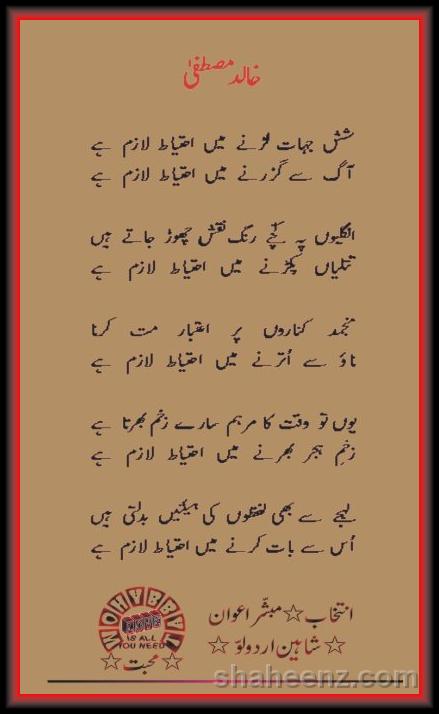 خالد مصطفیٰ
شش جہات لڑنے میں احتیاط لازم ہے
آگ سے گزرنے میں احتیاط لازم ہے
انگلیوں پہ کچّے رنگ نقش چھوڑ جاتے ہیں
تتلیاں پکڑنے میں احتیاط لازم ہے
منجمد کناروں پر اعتبار مت کرنا
ناؤ سے اُترنے میں احتیاط لازم ہے
یوں تو وقت کا مرہم سارے زخم بھرتا ہے
زخمِ ہجر بھرنے میں احتیاط لازم ہے
لہجے سے بھی لفظوں کی ہیئتیں بدلتی ہیں
اُس سے بات کرنے میں احتیاط لازم ہے
انتخاب ☆ مبشّر اعوان
☆ شاہین اردولوّ ☆
MOHABBAT
IS ALL
YOU NEED
☆ محبت ☆
shaheenz.com